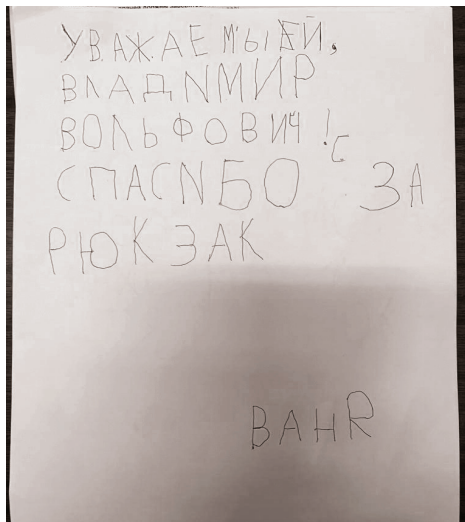 УВАЖАЕМЫЕЙ,
ВЛАДNМИР
ВОЛЬФОВИЧ!
С
СПАСNБО ЗА
РЮКЗАК
ВАНR